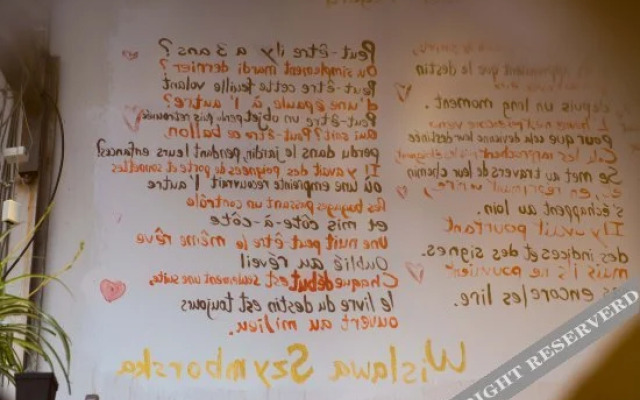 que le destin
depuis un long moment.
pour que cela devienne leur destinée
Se met au travers de leur chemin
s'échappent au loin.
Il y avait pourtant
des indices et des signes.
mais ils ne pouvaient
encore les lire.
Peut-être il y a 3 ans ?
Ou simplement mardi dernier ?
Peut-être cette feuille volant
d'une épaule à l'autre ?
Peut-être un objet perdu puis retrouvé
Qui sait ? Peut-être ce ballon.
perdu dans le jardin, pendant leurs enfances?
Il y avait des poignées de porte et sonnettes
où une empreinte recouvrait l'autre
des bagages passant un contrôle
et mis côte-à-côte
Une nuit peut-être le même rêve
Oublié au réveil
Chaque début est seulement une suite,
le livre du destin est toujours
ouvert au milieu.
Wislawa Szymborska
RIGHT RESERVERD